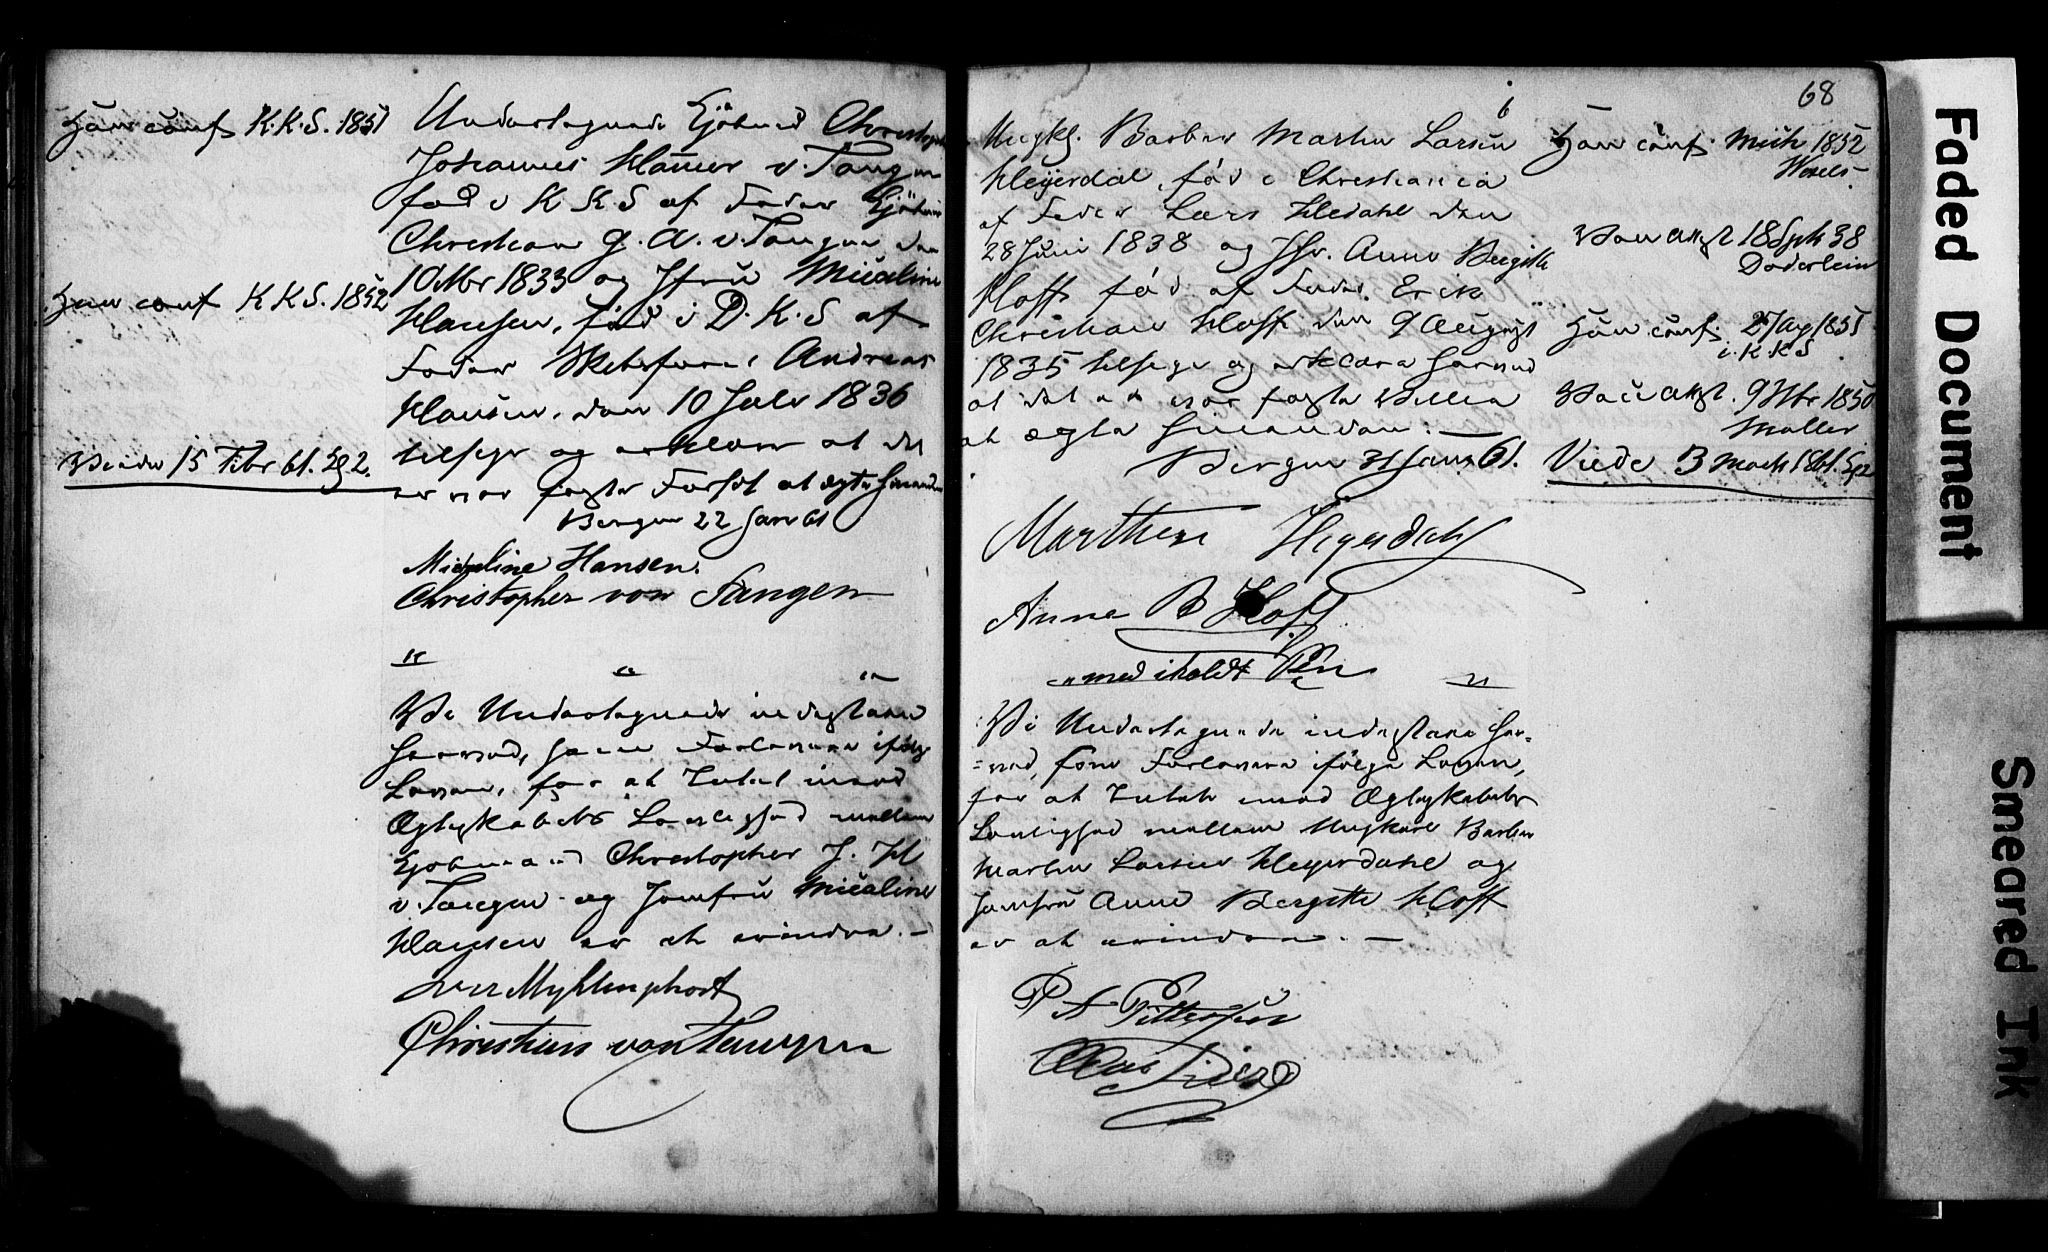 Han conf K.K.S. 1851
Hun conf K K S. 1852
Viede 15 Febr 61. Sg 2.
Undertegnede Kjöbmd Christoph
Johannes Hammer v. Tangen
fød i K K S af Fader Kjöbm
Christian G. A. v. Tangen den
10 Mbr 1833 og Jfru Micaline
Hansen, född i D. K. S af
Fader Andreas
Hansen, den 10 Juli 1836
tilfeye og erklære at det
er vor faste Forsæt at ægte hinanden
Bergen 22 Jan 61
Micaline Hansen.
Christopher von Tangen
" " "
Vi Undertegnede indestaae
herved, som Forlovere ifölge
Loven, for at Intet imod
Ægteskabets Lovlighed mellem
Kjöbmand Christopher J. H
v. Tangen og Jomfru Micaline
Hansen er at erindre. -
Myhlenphort
Christian von Tangen
68
Ungkl. Barber Martin Larsen
Heyerdal, född i Christiania
af Fader Lars Hedahl den
28 Juni 1838 og Jfr. Anne Birgitte
Hoff född af Fader Erik
Christian Hoff den 9 August
1835 tilfeye og erklære herved
at det er vor faste Villie
at ægte hinanden. -
Bergen 31 Janr 61.
Marthin Heyerdahl
Anne B Hoff
" med iholdt Pen "
Vi Undertegnede indestaae her=
=ved, som Forlovere ifølge Loven,
for at Intet imod Ægteskabets
Lovlighed mellem Ungkarl Barber
Martin Larsen Heyerdahl og
Jomfru Anne Bergitte Hoff
er at erindre. -
P A Pettersen
Han conf. Mich 1852
Wesels-
Vacc attst 18 Sptr 38
Döderlein
Hun conf. 27 Ap 1851
i. K. K S
Vacc attst. 9 1850
Møller
Viede 3 Marts 1861. Sg 2
Faded Document
Smeared Ink